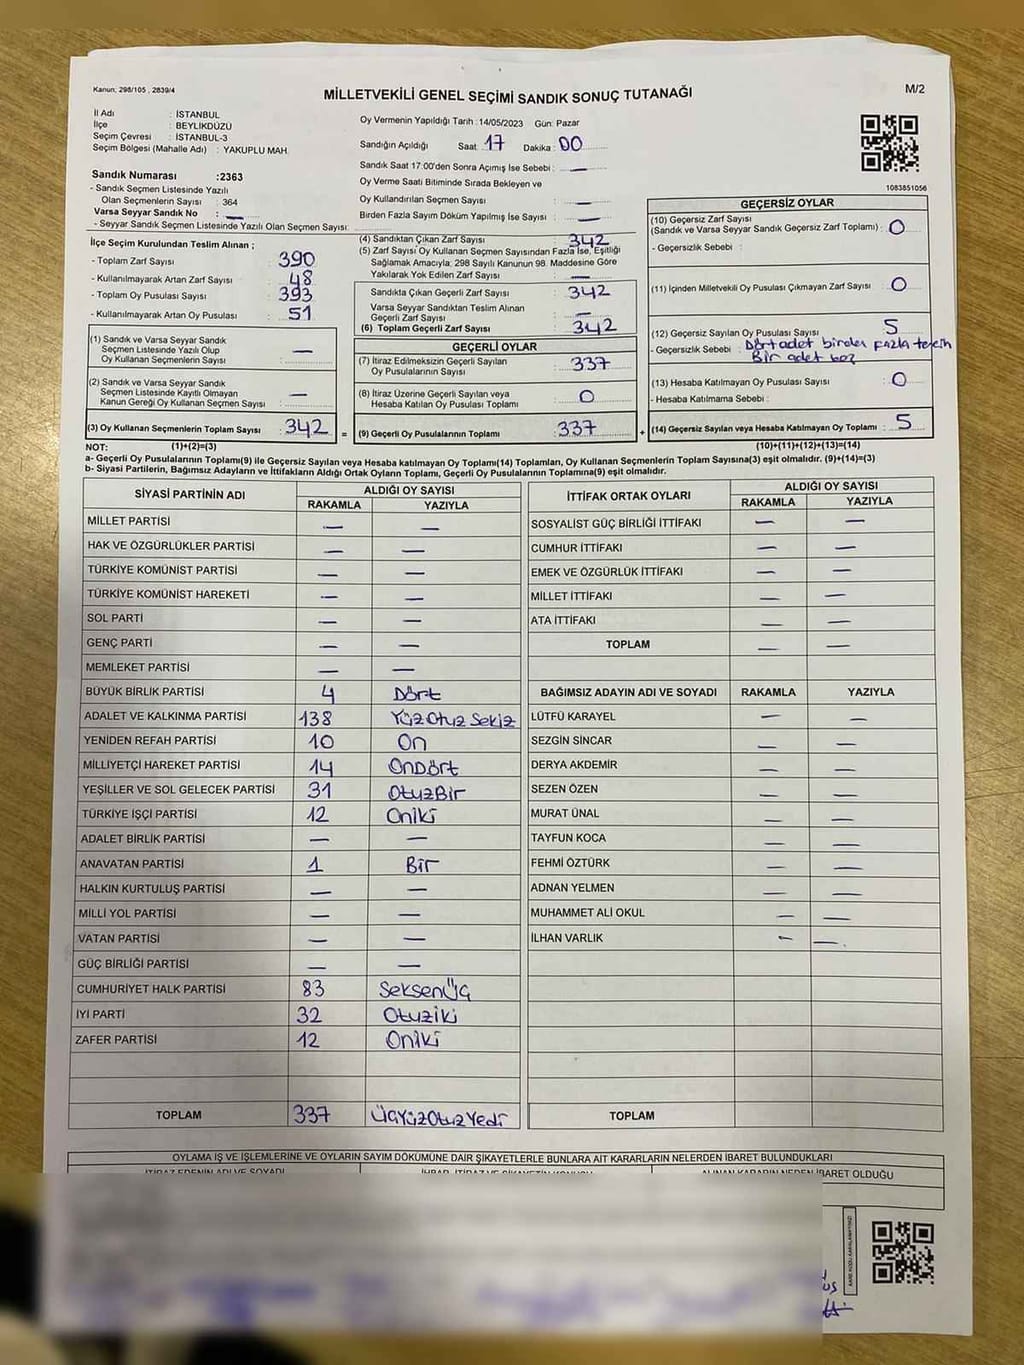 Kanun, 298/105 , 2839/4
MİLLETVEKİLİ GENEL SEÇİMİ SANDIK SONUÇ TUTANAĞI
M/2
İl Adı : İSTANBUL
İlçe : BEYLİKDÜZÜ
Seçim Çevresi : İSTANBUL-3
Seçim Bölgesi (Mahalle Adı) : YAKUPLU MAH.
Oy Vermenin Yapıldığı Tarih : 14/05/2023 Gün: Pazar
Sandığın Açıldığı Saat: 17 Dakika: 00
Sandık Saat 17:00'den Sonra Açımış İse Sebebi : —
Oy Verme Saati Bitiminde Sırada Bekleyen ve
Oy Kullandırılan Seçmen Sayısı : —
Birden Fazla Sayım Döküm Yapılmış İse Sayısı : —
1083851056
Sandık Numarası :2363
- Sandık Seçmen Listesinde Yazılı
Olan Seçmenlerin Sayısı : 364
Varsa Seyyar Sandık No : —
- Seyyar Sandık Seçmen Listesinde Yazılı Olan Seçmen Sayısı:
İlçe Seçim Kurulundan Teslim Alınan ;
- Toplam Zarf Sayısı : 390
- Kullanılmayarak Artan Zarf Sayısı : 48
- Toplam Oy Pusulası Sayısı : 393
- Kullanılmayarak Artan Oy Pusulası : 51
(1) Sandık ve Varsa Seyyar Sandık
Seçmen Listesinde Yazılı Olup
Oy Kullanan Seçmenlerin Sayısı : —
(2) Sandık ve Varsa Seyyar Sandık
Seçmen Listesinde Kayıtlı Olmayan
Kanun Gereği Oy Kullanan Seçmen Sayısı : —
(3) Oy Kullanan Seçmenlerin Toplam Sayısı : 342
(4) Sandıktan Çıkan Zarf Sayısı : 342
(5) Zarf Sayısı Oy Kullanan Seçmen Sayısından Fazla İse, Eşitliği
Sağlamak Amacıyla; 298 Sayılı Kanunun 98. Maddesine Göre
Yakılarak Yok Edilen Zarf Sayısı : —
Sandıkta Çıkan Geçerli Zarf Sayısı : 342
Varsa Seyyar Sandıktan Teslim Alınan
Geçerli Zarf Sayısı : —
(6) Toplam Geçerli Zarf Sayısı : 342
GEÇERLİ OYLAR
(7) İtiraz Edilmeksizin Geçerli Sayılan
Oy Pusulalarının Sayısı : 337
(8) İtiraz Üzerine Geçerli Sayılan veya
Hesaba Katılan Oy Pusulası Toplamı : 0
= (9) Geçerli Oy Pusulalarının Toplamı : 337 +
GEÇERSİZ OYLAR
(10) Geçersiz Zarf Sayısı
(Sandık ve Varsa Seyyar Sandık Geçersiz Zarf Toplamı) : 0
- Geçersizlik Sebebi :
(11) İçinden Milletvekili Oy Pusulası Çıkmayan Zarf Sayısı : 0
(12) Geçersiz Sayılan Oy Pusulası Sayısı : 5
- Geçersizlik Sebebi : Dört adet birden fazla tercih
Bir adet boş
(13) Hesaba Katılmayan Oy Pusulası Sayısı : 0
- Hesaba Katılmama Sebebi :
(14) Geçersiz Sayılan veya Hesaba Katılmayan Oy Toplamı : 5
NOT: (1)+(2)=(3)
(10)+(11)+(12)+(13)=(14)
a- Geçerli Oy Pusulaların Toplamı(9) ile Geçersiz Sayılan veya Hesaba katılmayan Oy Toplamı(14) Toplamları, Oy Kullanan Seçmenlerin Toplam Sayısına(3) eşit olmalıdır. (9)+(14)=(3)
b- Siyasi Partilerin, Bağımsız Adayların ve İttifakların Aldığı Ortak Oyların Toplamı, Geçerli Oy Pusulalarının Toplamına(9) eşit olmalıdır.
SİYASİ PARTİNİN ADI ALDIĞI OY SAYISI
RAKAMLA YAZIYLA
MİLLET PARTİSİ — —
HAK VE ÖZGÜRLÜKLER PARTİSİ — —
TÜRKİYE KOMÜNİST PARTİSİ — —
TÜRKİYE KOMÜNİST HAREKETİ — —
SOL PARTİ — —
GENÇ PARTİ — —
MEMLEKET PARTİSİ — —
BÜYÜK BİRLİK PARTİSİ 4 Dört
ADALET VE KALKINMA PARTİSİ 138 Yüz Otuz Sekiz
YENİDEN REFAH PARTİSİ 10 On
MİLLİYETÇİ HAREKET PARTİSİ 14 OnDört
YEŞİLLER VE SOL GELECEK PARTİSİ 31 OtuzBir
TÜRKİYE İŞÇİ PARTİSİ 12 Oniki
ADALET BİRLİK PARTİSİ — —
ANAVATAN PARTİSİ 1 Bir
HALKIN KURTULUŞ PARTİSİ — —
MİLLİ YOL PARTİSİ — —
VATAN PARTİSİ — —
GÜÇ BİRLİĞİ PARTİSİ — —
CUMHURİYET HALK PARTİSİ 83 SeksenÜç
İYİ PARTİ 32 Otuziki
ZAFER PARTİSİ 12 Oniki
TOPLAM 337 ÜçYüzOtuzYedi
İTTİFAK ORTAK OYLARI ALDIĞI OY SAYISI
RAKAMLA YAZIYLA
SOSYALİST GÜÇ BİRLİĞİ İTTİFAKI — —
CUMHUR İTTİFAKI — —
EMEK VE ÖZGÜRLÜK İTTİFAKI — —
MİLLET İTTİFAKI — —
ATA İTTİFAKI — —
TOPLAM — —
BAĞIMSIZ ADAYIN ADI VE SOYADI RAKAMLA YAZIYLA
LÜTFÜ KARAYEL — —
SEZGİN SİNCAR — —
DERYA AKDEMİR — —
SEZEN ÖZEN — —
MURAT ÜNAL — —
TAYFUN KOCA — —
FEHMİ ÖZTÜRK — —
ADNAN YELMEN — —
MUHAMMET ALİ OKUL — —
İLHAN VARLIK — —
TOPLAM
OYLAMA İŞ VE İŞLEMLERİNE VE OYLARIN SAYIM DÖKÜMÜNE DAİR ŞİKAYETLERLE BUNLARA AİT KARARLARIN NELERDEN İBARET BULUNDUKLARI
İTİRAZ EDENİN ADI VE SOYADI İHBAR, İTİRAZ VE ŞİKAYETİN KONUSU ALINAN KARARIN NEDEN İBARET OLDUĞU